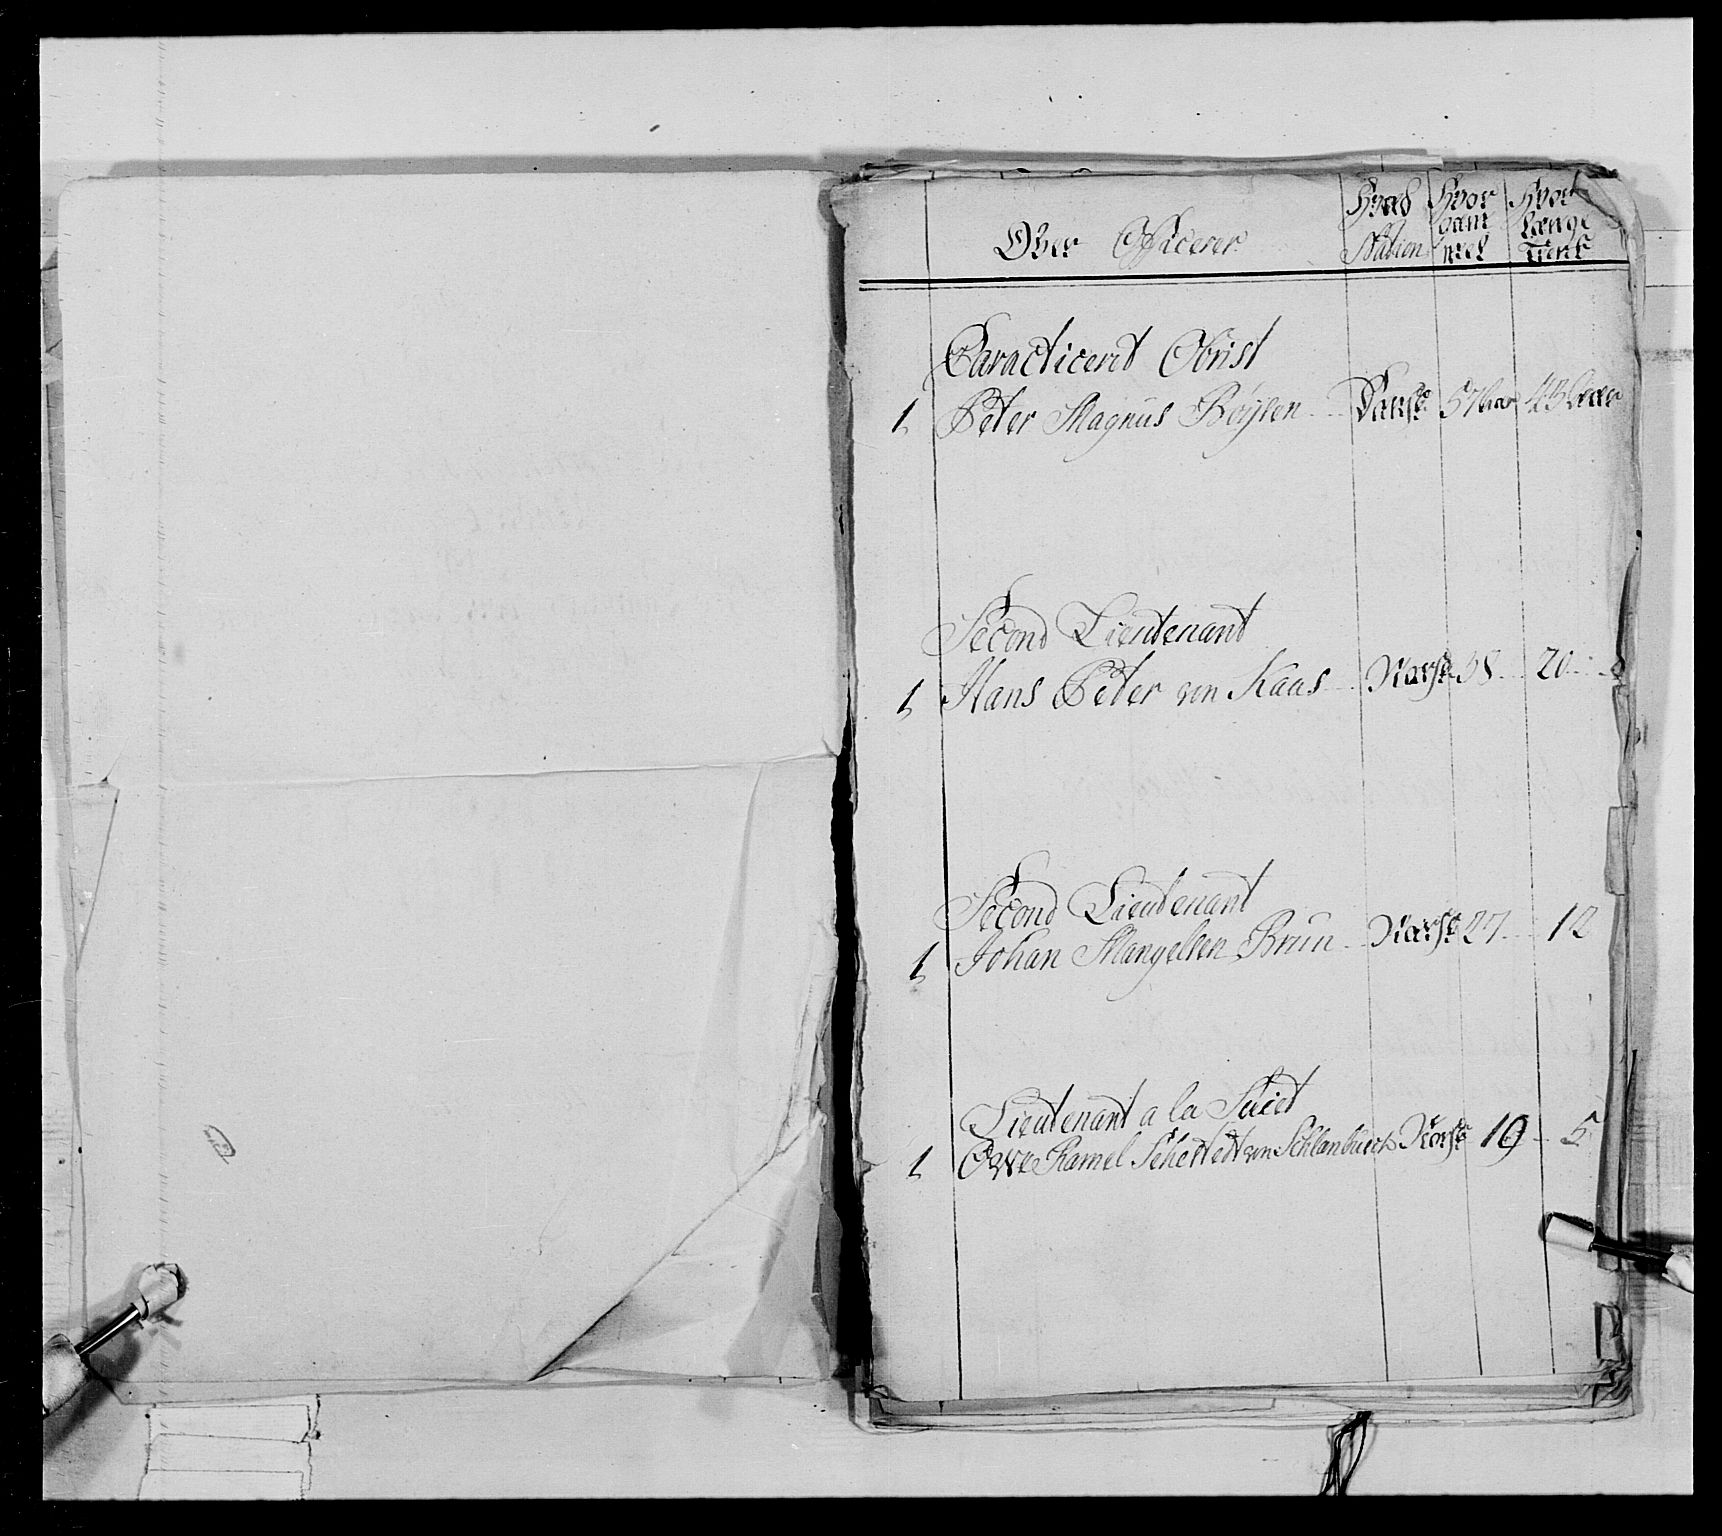 Over Officerer
Hvad Nation
Hvor gam mel
Hvor længe Tient
Caracticeret Obrist
1 Peter Magnus Böysen Dansk 57 Aar 43 Aar
Second Lieutenant
1 Hans Peter von Kaas Norsk 38 20
Second Lieutenant
1 Johan Mangelsen Brun Norsk 27 12
Lieutenant a la Suict
1 Owe Ramel Sehestedt von Schlanbusch Norsk 19 5